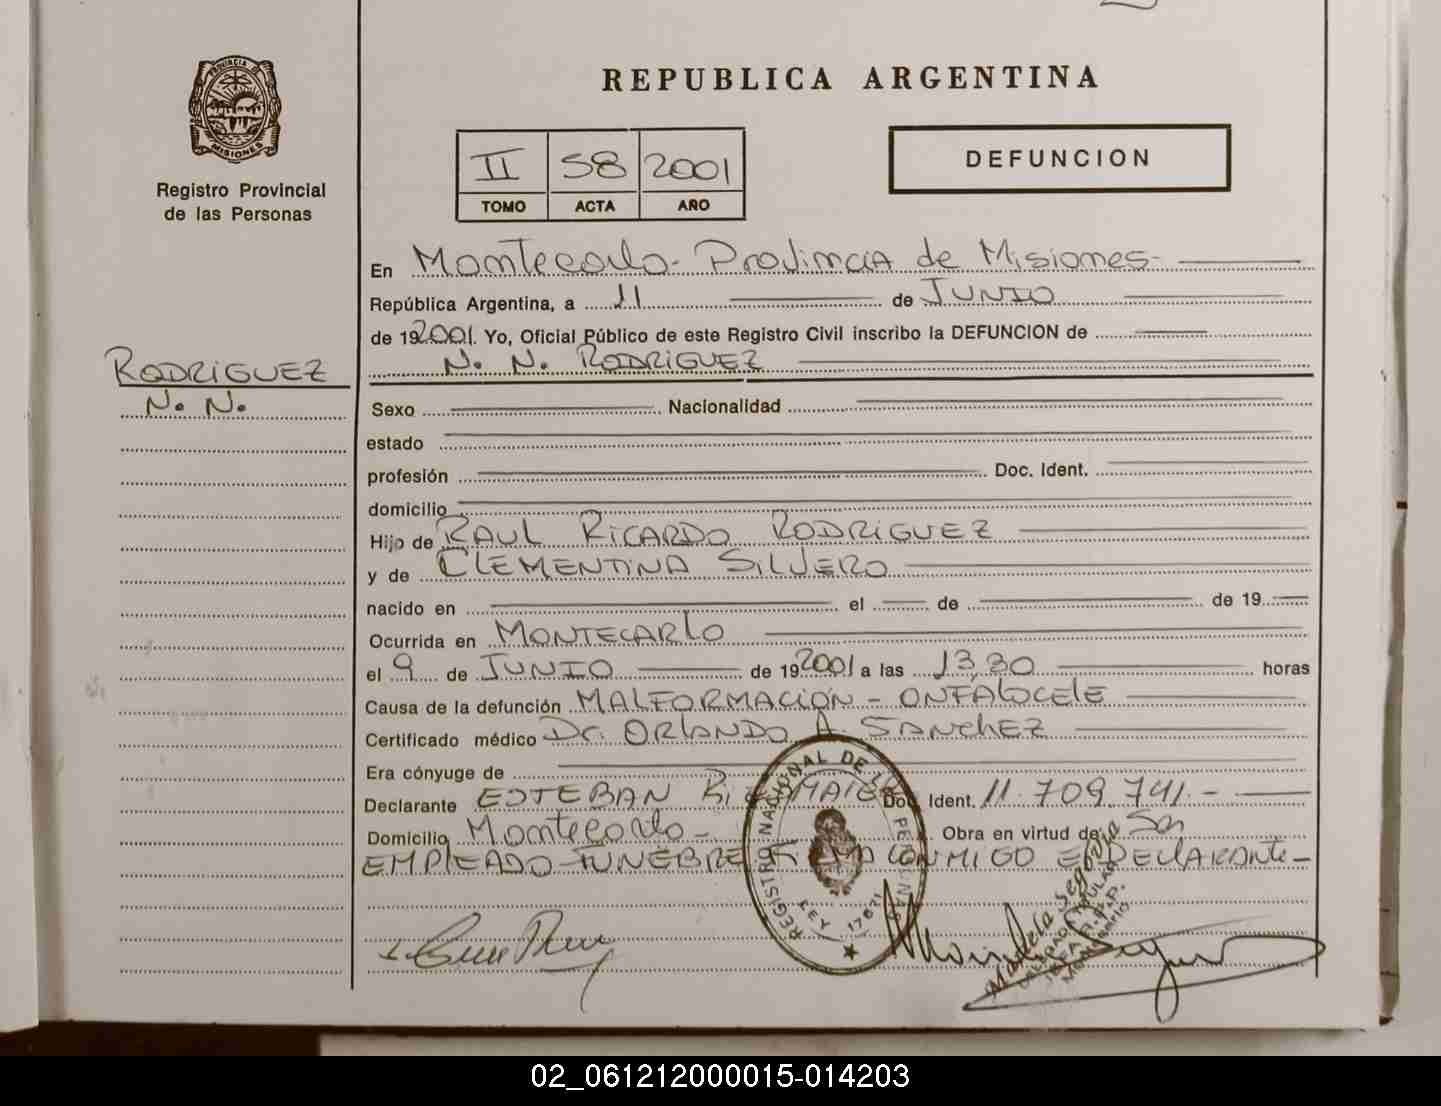 PROVINCIA DE
MISIONES
Registro Provincial
de las Personas
REPUBLICA ARGENTINA
II 58 2001
TOMO ACTA AÑO
DEFUNCION
En Montecarlo - Provincia de Misiones
República Argentina, a 11 de JUNIO
de 192001. Yo, Oficial Público de este Registro Civil inscribo la DEFUNCION de
N. N. RODRIGUEZ
RODRIGUEZ
N. N.
Sexo Nacionalidad
estado
profesión Doc. Ident.
domicilio
Hijo de RAUL RICARDO RODRIGUEZ
y de CLEMENTINA SILVERO
nacido en el de de 19
Ocurrida en MONTECARLO
el 9 de JUNIO de 192001 a las 13,30 horas
Causa de la defunción MALFORMACION - ONFALOCELE
Certificado médico Dr. ORLANDO A. SANCHEZ
Era cónyuge de
Declarante ESTEBAN Doc. Ident. 11.709.741.-
Domicilio Montecarlo - Obra en virtud de Ser
EMPLEADO FUNEBRE FIRMA CONMIGO EL DECLARANTE -
REGISTRO NACIONAL DE LAS PERSONAS
LEY 17671
Mariela Segovia
02_061212000015-014203